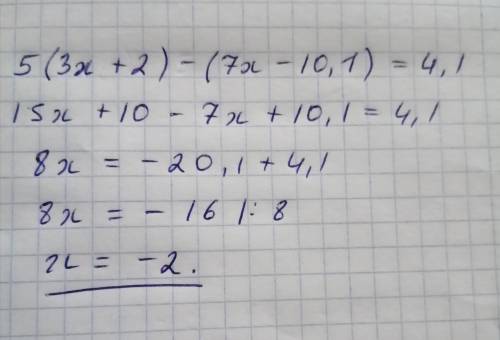 5(3x + 2) - (7x - 10,1) = 4,1
15x + 10 - 7x + 10,1 = 4,1
8x = -20,1 + 4,1
8x = -16 |: 8
x = -2.